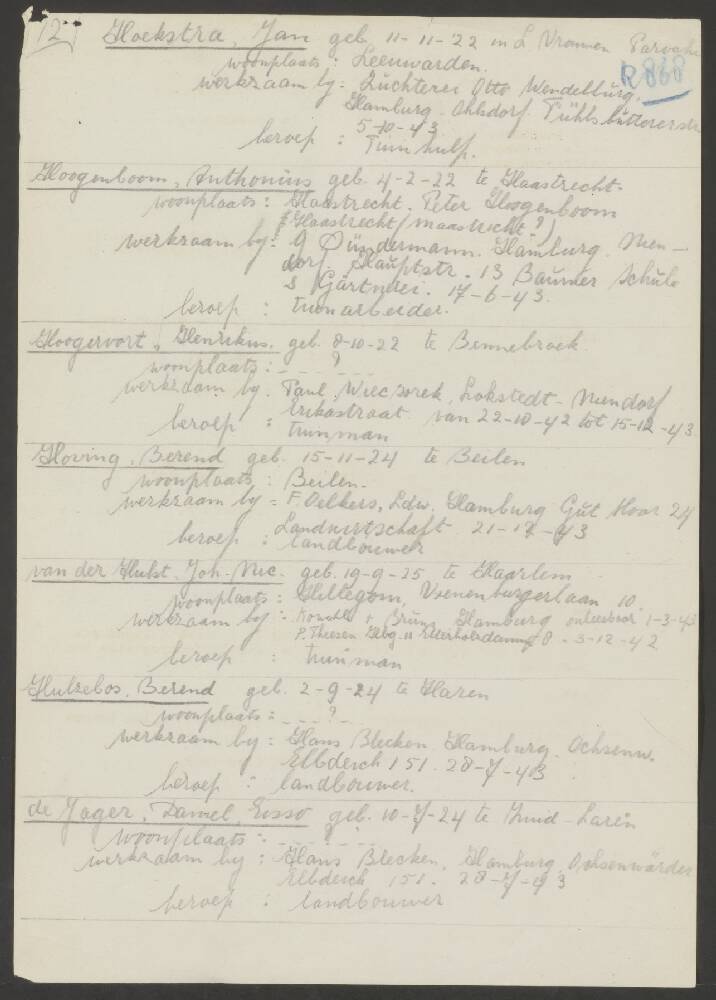 12)
Hoekstra, Jan geb. 11-11-'22 in L Vrouwen Parochie
R868
woonplaats: Leeuwarden.
werkzaam by: Züchterei Otto Wendelburg.
Hamburg. Ohlsdorf
5-10-43
beroep : Tuinhulp.
Hoogenboom, Anthonius geb. 4-2-22 te Haastrecht.
woonplaats: Haastrecht. Peter Hoogenboom
Haastrecht (maastricht?)
werkzaam by: Hamburg. Nien-
dorf. Hauptstr. 13 Baumer Schule
& Gärtnerei. 17-6-43.
beroep : tuinarbeider.
Hoogervorst, Henrikus. geb. 8-10-22 te Bennebroek
woonplaats: - - - ? - -
werkzaam by. Paul Wieczorek, Lokstedt-Niendorf
Erikastraat van 22-10-42 tot 15-12-43
beroep : tuinman
Hoving, Berend geb. 15-11-24 te Beilen
woonplaats: Beilen.
werkzaam by = F. Oelkers, Ldw. Hamburg Gut Moor 24
Landwirtschaft 21-17-43
beroep : landbouwer
van der Hulst, Joh. Nic. geb. 19-9-25 te Haarlem
woonplaats: Hillegom, Vrenenburgerlaan 10.
werkzaam by: + Bruns Hamburg 1-3-43
P. Theesen 8-3-12-42
beroep : tuinman
Hulzebos, Berend geb. 2-9-24 te Haren
woonplaats = - - - ? -
werkzaam by : Hans Blecken. Hamburg. Ochsenw.
Elbdeich 151. 28-7-43
beroep : landbouwer.
de Jager, Daniel, Eisso geb. 10-7-24 te Zuid-Laren
woonplaats = - - - ? - -
werkzaam by : Hans Blecken, Hamburg, Ochsenwärder
Elbdeich 151. 28-7-43
beroep : landbouwer